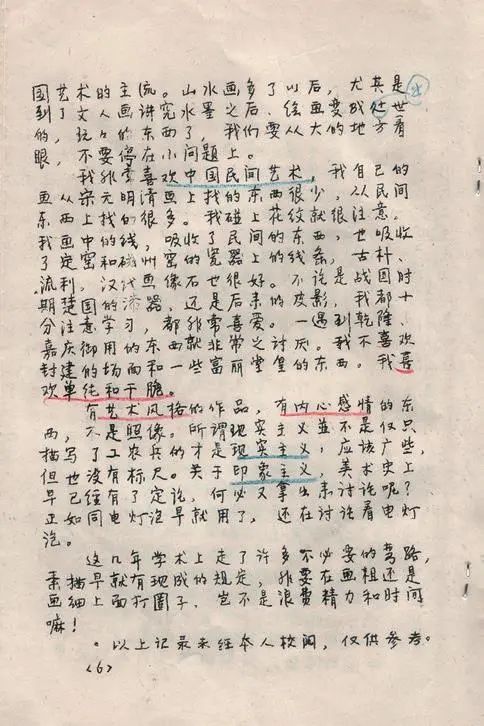 国艺术的主流。山水画多了以后，尤其是
到了文人画讲究水墨之后，绘画变成过世
的，玩々的东西了，我们要从大的地方看
眼，不要停在小问题上。
我非常喜欢中国民间艺术，我自己的
画从宋元明清画上找的东西很少，从民间
东西上找的很多。我碰上花纹就很注意。
我画中的线，吸收了民间的东西，也吸收
了定窑和磁州窑的瓷器上的线条，古朴、
流利，汉代画像石也很好。不论是战国时
期楚国的漆器，还是后来的皮影，我都十
分注意学习，都非常喜爱。一遇到乾隆、
嘉庆御用的东西就非常之讨厌。我不喜欢
封建的场面和一些富丽堂皇的东西。我喜
欢单纯和干脆。
有艺术风格的作品，有内心感情的东
西，不是照像。所谓现实主义並不是仅只
描写了工农兵的才是现实主义，应该广些，
但也没有标尺。关于印象主义，美术史上
早已经有了定论，何必又拿出来讨论呢？
正如同电灯泡早就用了，还在讨论着电灯
泡。
这几年学术上走了许多不必要的弯路，
素描早就有现成的规定，非要在画粗还是
画细上面打圈子，岂不是浪费精力和时间
嘛！
·以上记录未经本人校阅，仅供参考。
〈6〉